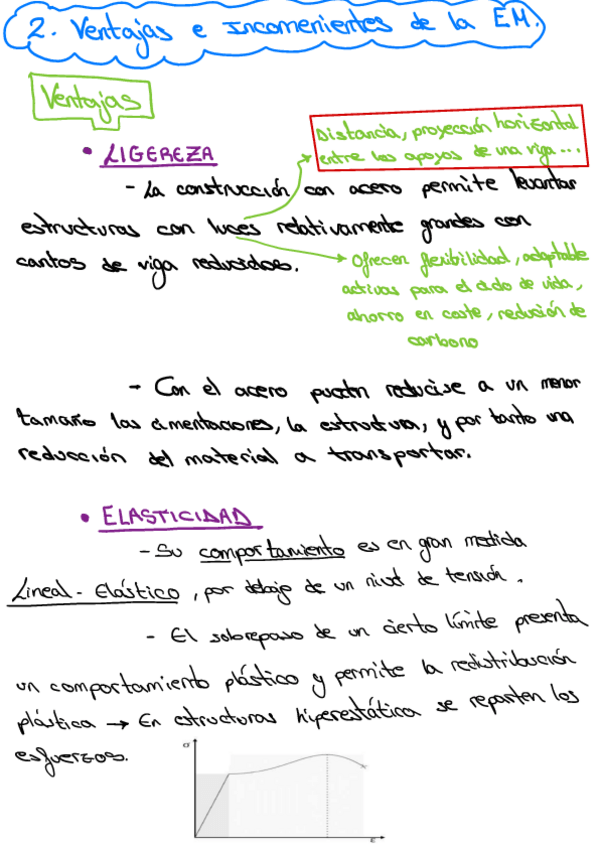 2. Ventajas e Inconvenientes de la EM.
Ventajas
• LIGEREZA
Distancia, proyección horizontal
entre los apoyos de una viga...
- La construcción con acero permite levantar
estructuras con luces relativamente grandes con
cantos de viga reducidos.
Ofrecen flexibilidad, adaptable
activas para el ciclo de vida,
ahorro en coste, redución de
carbono
- Con el acero pueden reducirse a un menor
tamaño las cimentaciones, la estructura, y por tanto una
reducción del material a transportar.
• ELASTICIDAD
- Su comportamiento es en gran medida
Lineal - Elástico, por debajo de un nivel de tensión.
- El sobrepaso de un cierto límite presenta
un comportamiento plástico y permite la redistribución
plástica → En estructuras hiperestática se reparten los
esfuerzos.
σ
ε